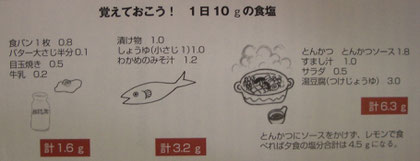 覚えておこう！ 1日10gの食塩
食パン1枚 0.8
バター大さじ半分0.1
目玉焼き 0.5
牛乳 0.2
計1.6g
漬け物 1.0
しょうゆ(小さじ1)1.0
わかめのみそ汁 1.2
計3.2g
とんかつ とんかつソース 1.8
すまし汁 1.0
サラダ 0.5
湯豆腐(つけじょうゆ) 3.0
計6.3g
とんかつにソースをかけず、レモンで食
べれば夕食の塩分合計は4.5gになる。